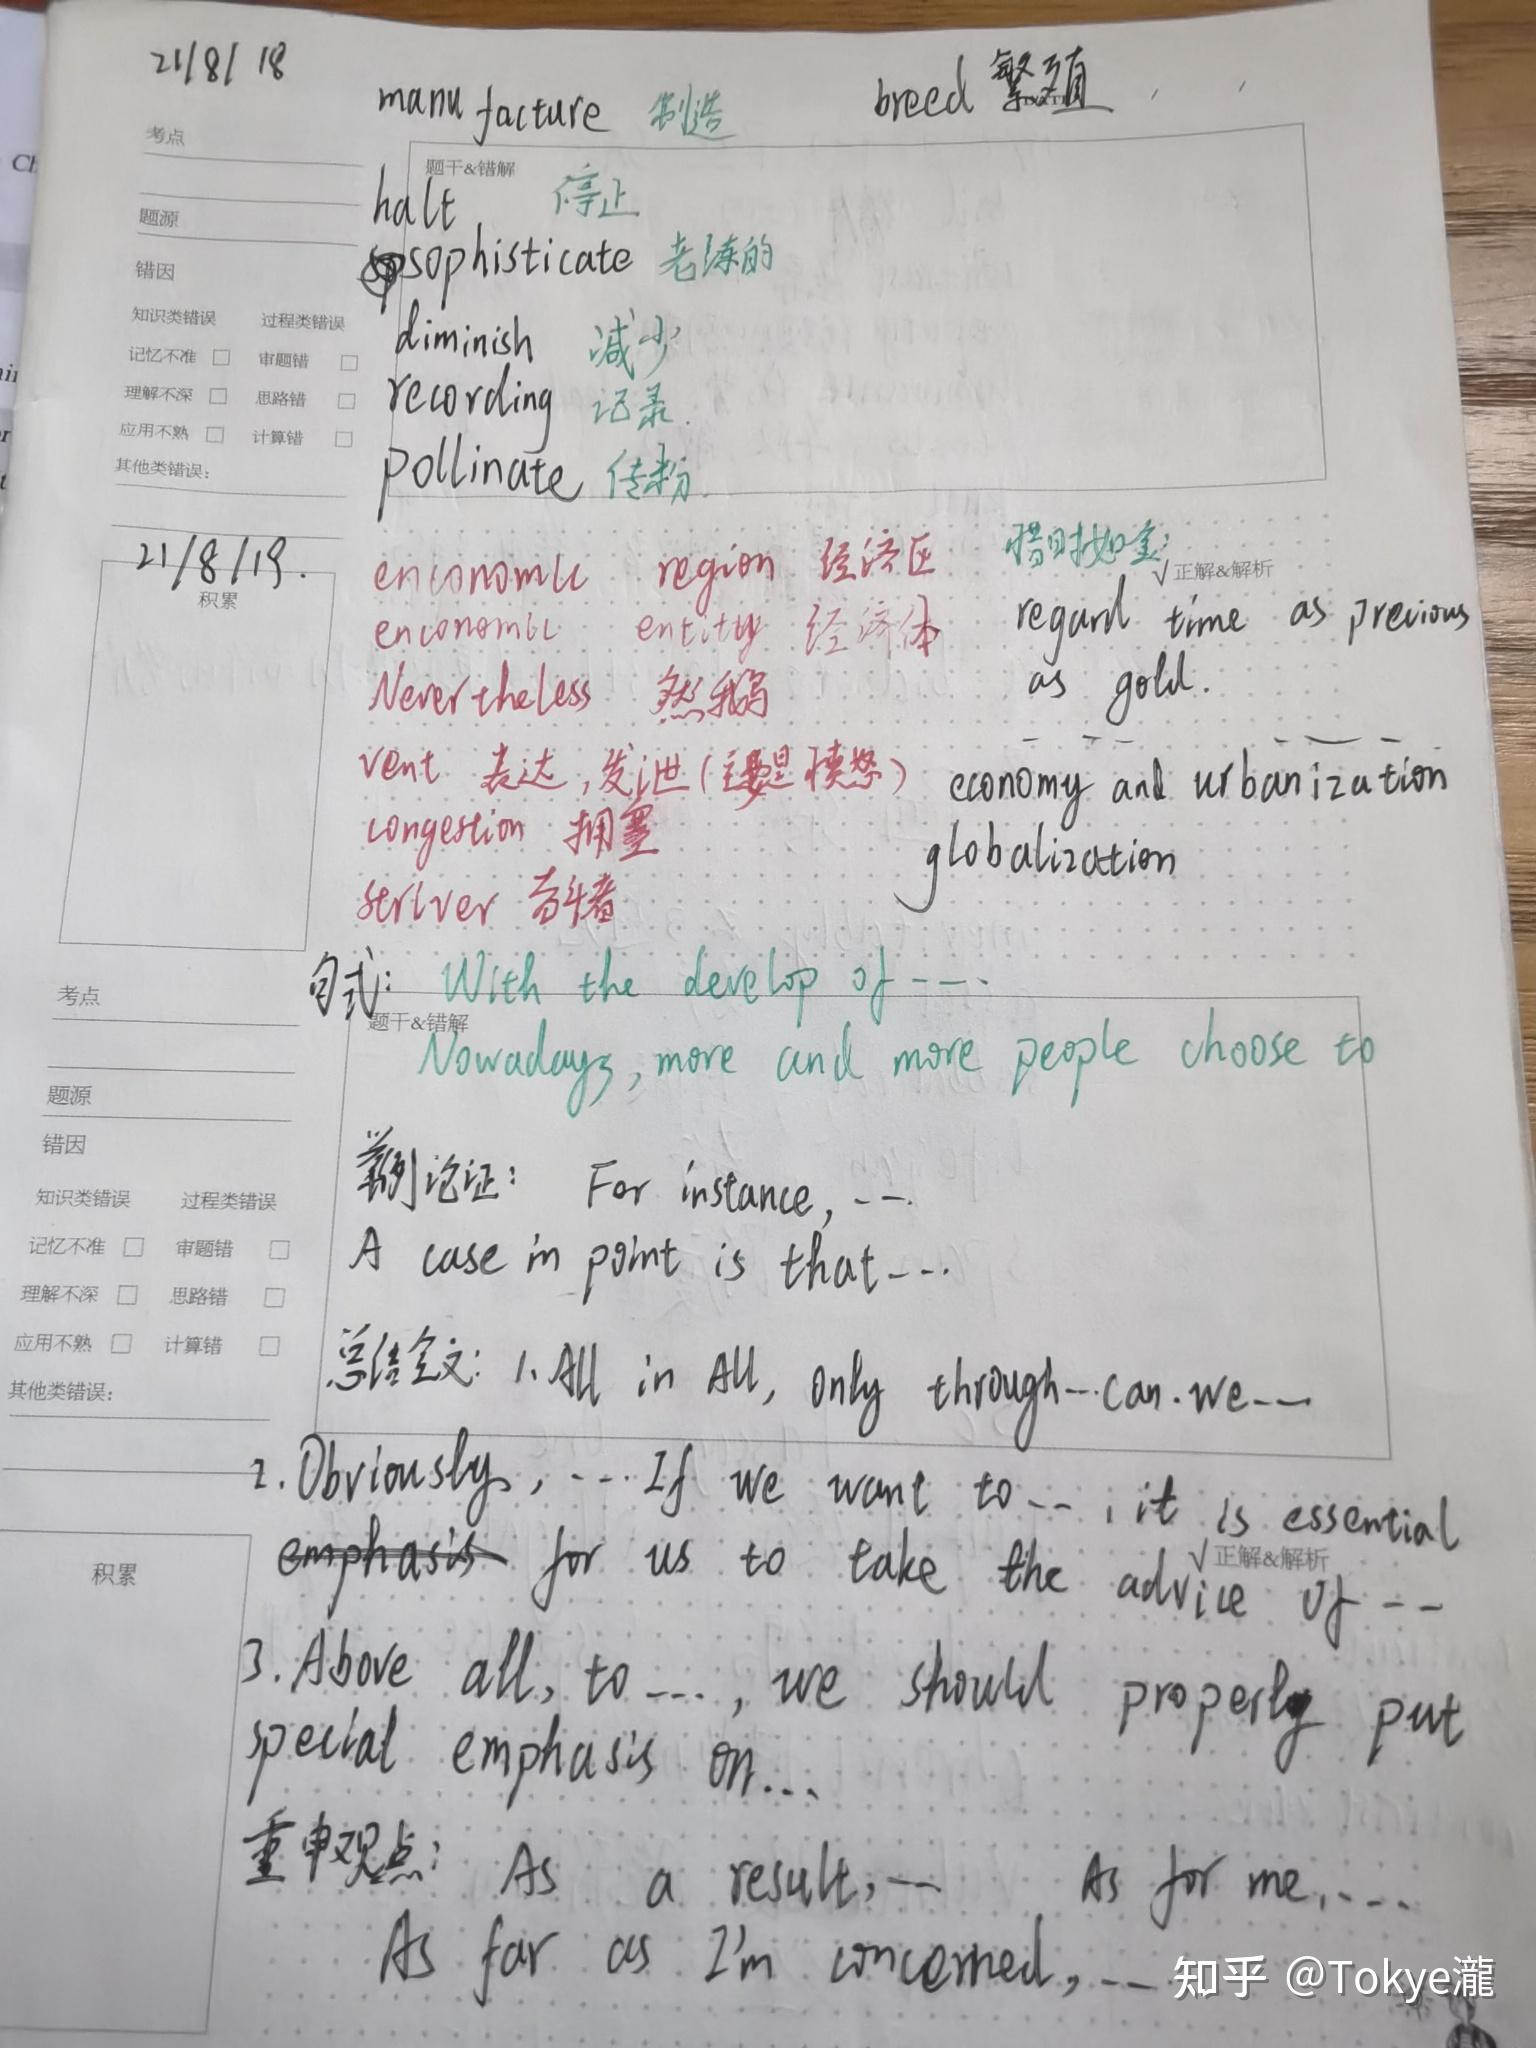 21/8/18
manufacture 制造 breed 繁殖
考点
题干&错解
halt 停止
题源
sophisticate 老练的
错因
知识类错误 过程类错误
diminish 减少
记忆不准 □ 审题错 □
recording 记录.
理解不深 □ 思路错 □
应用不熟 □ 计算错 □
pollinate 传粉.
其他类错误:
21/8/19.
积累
enconomic region 经济区
惜时如金:
√正解&解析
enconomic entity 经济体
regard time as precious
as gold.
Nevertheless 然鹅
vent 表达,发泄(主要是愤怒)
economy and urbanization
congestion 拥塞
globalization
striver 奋斗者
句式: With the develop of ----
考点
题干&错解
Nowadays, more and more people choose to
题源
错因
举例论证: For instance, ---
知识类错误 过程类错误
记忆不准 □ 审题错 □
A case in point is that----
理解不深 □ 思路错 □
应用不熟 □ 计算错 □
总结全文: 1. All in All, only through--- can we---
其他类错误:
2. Obviously, ---- If we want to---, it is essential
emphasis for us to take the advice of ---
√正解&解析
积累
3. Above all, to ----, we should properly put
special emphasis on...
重申观点: As a result, --- As for me, ----
As far as I'm concerned, ---
知乎 @Tokye瀧